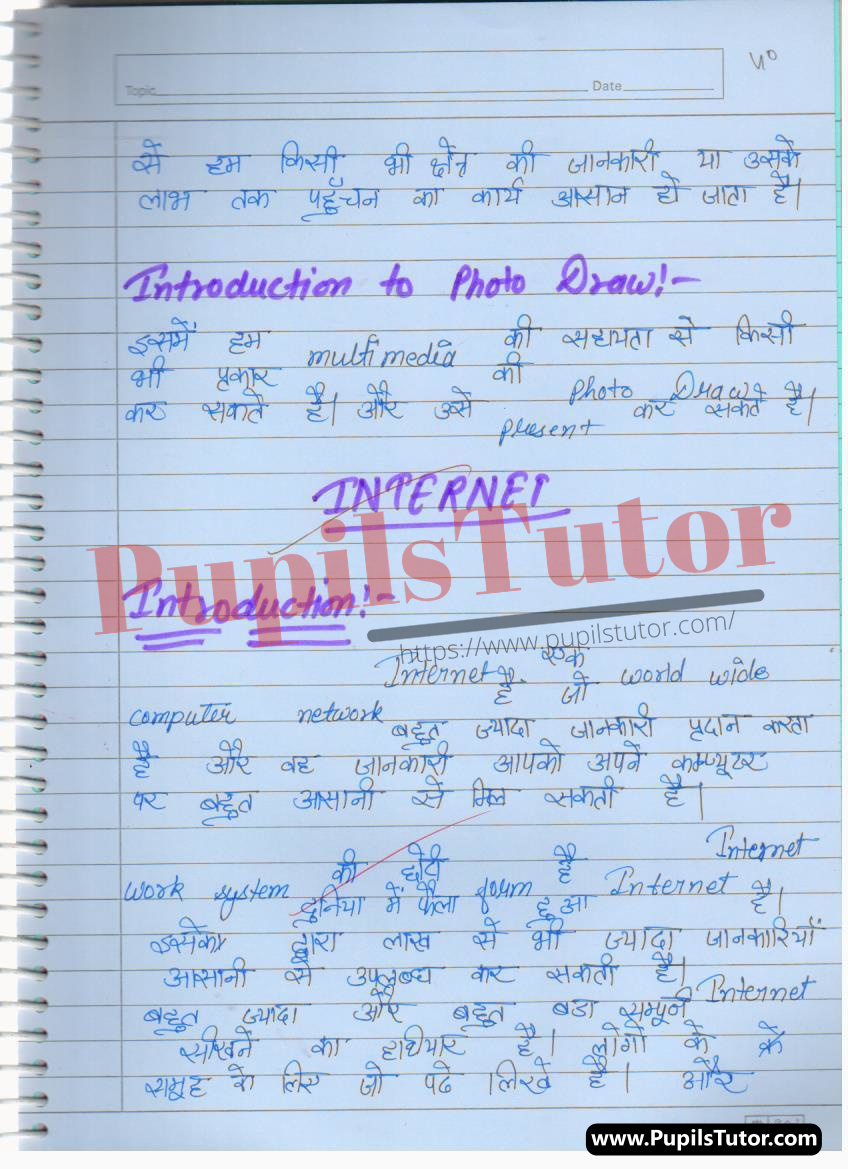 Topic Date
40
से हम किसी भी क्षेत्र की जानकारी या उसके
लाभ तक पहुँचन का कार्य आसान हो जाता है।
Introduction to Photo Draw:-
इसमें हम multimedia की सहायता से किसी
भी प्रकार की Photo Draw
कर सकते है। और उसे present कर सकते है।
INTERNET
PupilsTutor
Introduction:-
https://www.pupilstutor.com/
Internet एक world wide
computer network है जो बहुत ज्यादा जानकारी प्रदान करता
है और वह जानकारी आपको अपने कम्प्यूटर
पर बहुत आसानी से मिल सकती है।
Internet
work system की छोटी form है Internet
दुनिया में फैला हुआ है।
इसके द्वारा लाख से भी ज्यादा जानकारियाँ
आसानी से उपलब्ध कर सकती है। Internet
बहुत ज्यादा और बहुत बडा सम्पूर्ण
सीखने का हाथीयार है। लोगों के
समूह के लिए जो पढे लिखे है। और
www.PupilsTutor.com